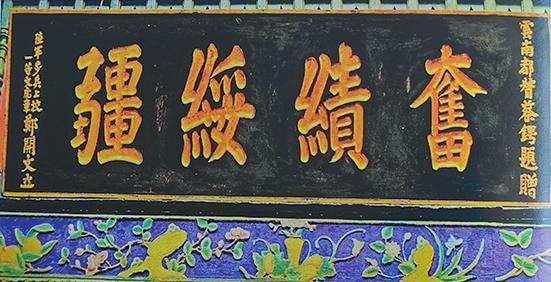 雲南都督蔡鍔題贈
奮績綏疆
陸軍步兵上校
一等文虎章
鄭開文立